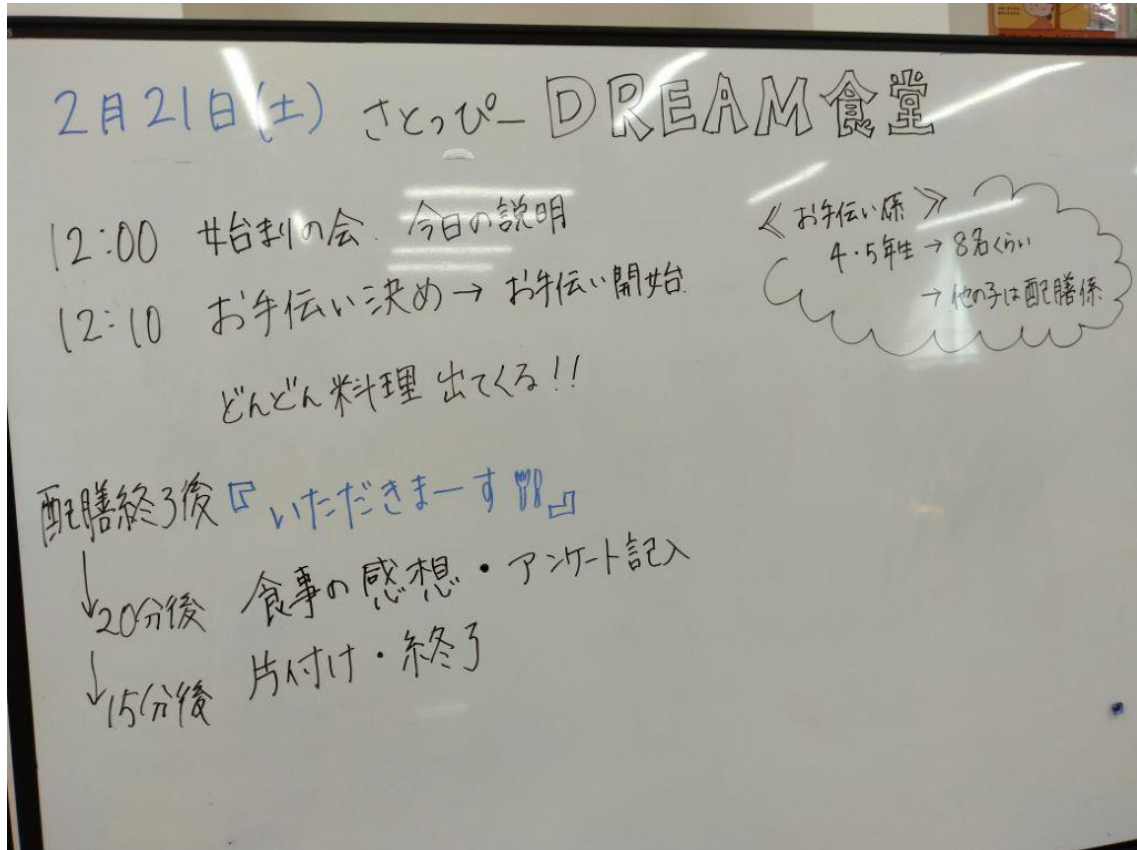 2月21日(土) さとっぴー DREAM食堂
12:00 始まりの会 今日の説明
12:10 お手伝い決め→ お手伝い開始
どんどん料理 出てくる!!
≪お手伝い係≫
4・5年生→8名くらい
→他の子は配膳係
配膳終了後『いただきまーす』
↓20分後 食事の感想・アンケート記入
↓15分後 片付け・終了